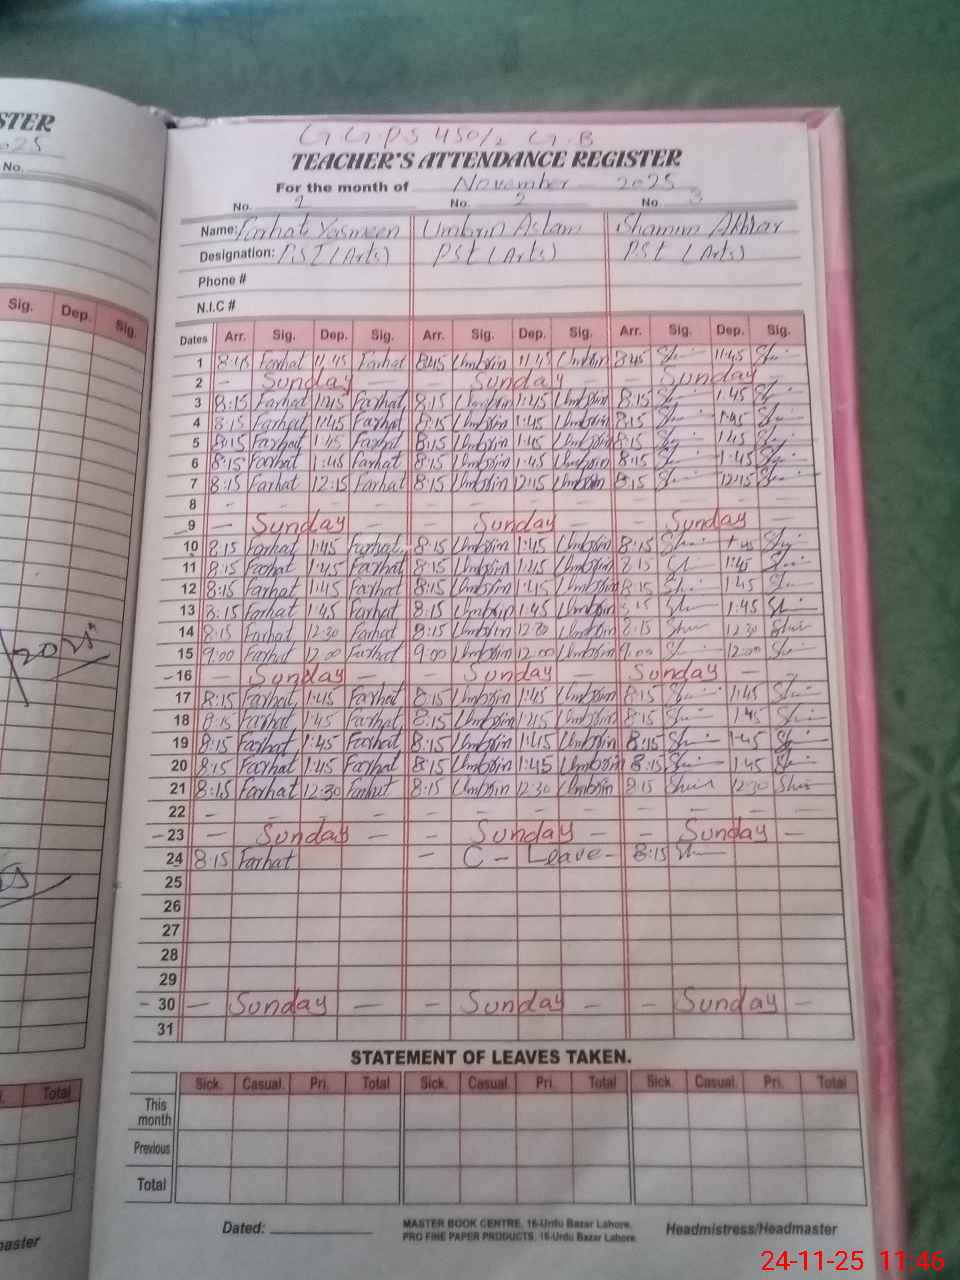 STER
No.
Sig. Dep. Sig.
2025
Total
master
G.G.P.S 450/2 G.B
TEACHER'S ATTENDANCE REGISTER
For the month of November 2025
No. 1 No. 2 No. 3
Name: Farhat Yasmeen Umbrin Aslam Shamim Akhtar
Designation: PST (Arts) PST (Arts) PST (Arts)
Phone #
N.I.C #
Dates Arr. Sig. Dep. Sig. Arr. Sig. Dep. Sig. Arr. Sig. Dep. Sig.
1 8:45 Farhat 11:45 Farhat 8:45 Umbrin 11:45 Umbrin 8:45 11:45
2 – Sunday – – Sunday – – Sunday –
3 8:15 Farhat 1:45 Farhat 8:15 Umbrin 1:45 Umbrin 8:15 1:45
4 8:15 Farhat 1:45 Farhat 8:15 Umbrin 1:45 Umbrin 8:15 1:45
5 8:15 Farhat 1:45 Farhat 8:15 Umbrin 1:45 Umbrin 8:15 1:45
6 8:15 Farhat 1:45 Farhat 8:15 Umbrin 1:45 Umbrin 8:15 1:45
7 8:15 Farhat 12:15 Farhat 8:15 Umbrin 12:15 Umbrin 8:15 12:15
8 – – – – – – – – – – – –
9 – Sunday – – Sunday – – Sunday –
10 8:15 Farhat 1:45 Farhat 8:15 Umbrin 1:45 Umbrin 8:15
11 8:15 Farhat 1:45 Farhat 8:15 Umbrin 1:45 Umbrin 8:15 1:45
12 8:15 Farhat 1:45 Farhat 8:15 Umbrin 1:45 Umbrin 8:15 1:45
13 8:15 Farhat 1:45 Farhat 8:15 Umbrin 1:45 Umbrin 8:15 1:45
14 8:15 Farhat 12:30 Farhat 8:15 Umbrin 12:30 Umbrin 8:15 12:30
15 9:00 Farhat 12:00 Farhat 9:00 Umbrin 12:00 Umbrin 9:00 12:00
16 – Sunday – – Sunday – – Sunday –
17 8:15 Farhat 1:45 Farhat 8:15 Umbrin 1:45 Umbrin 8:15 1:45
18 8:15 Farhat 1:45 Farhat 8:15 Umbrin 1:45 Umbrin 8:15 1:45
19 8:15 Farhat 1:45 Farhat 8:15 Umbrin 1:45 Umbrin 8:15 1:45
20 8:15 Farhat 1:45 Farhat 8:15 Umbrin 1:45 Umbrin 8:15 1:45
21 8:15 Farhat 12:30 Farhat 8:15 Umbrin 12:30 Umbrin 8:15 12:30
22 – – – – – – – – – – – –
23 – Sunday – – Sunday – – Sunday –
24 8:15 Farhat – C – Leave – 8:15
25
26
27
28
29
30 – Sunday – – Sunday – – Sunday –
31
STATEMENT OF LEAVES TAKEN.
Sick. Casual. Pri. Total Sick. Casual. Pri. Total Sick. Casual. Pri. Total
This month
Previous
Total
Dated: MASTER BOOK CENTRE, 16-Urdu Bazar Lahore. Headmistress/Headmaster
PRO FINE PAPER PRODUCTS, 16-Urdu Bazar Lahore
24-11-25 11:46